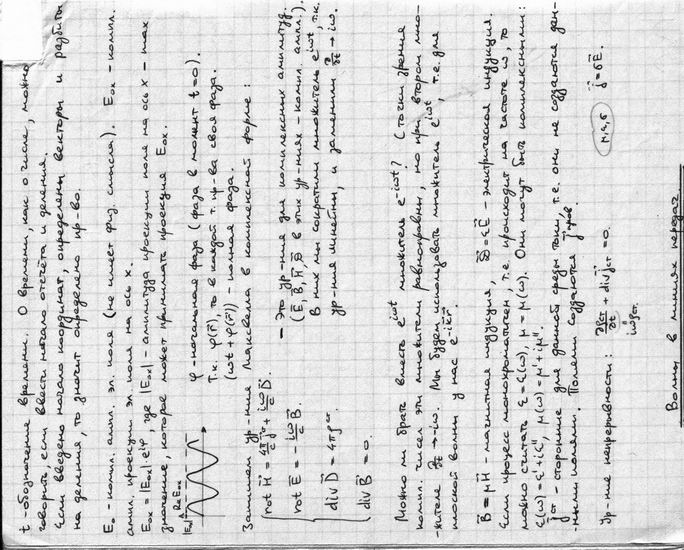 t - обозначение времени. О времени, как о числе, можно
говорить, если ввести начало отсчёта и деления.
Если введено начало координат, определены векторы и разбиты
на деления, то значит определено пр-во.
E₀ - компл. ампл. эл. поля (не имеет физ. смысла). E₀ₓ - компл.
ампл. проекции эл. поля на ось x.
E₀ₓ = |E₀ₓ| e^{iφ}, где |E₀ₓ| - амплитуда проекции поля на ось x - max
значение, которое может принимать проекция E₀ₓ.
|E₀ₓ| Re E₀ₓ
φ - начальная фаза (фаза в момент t=0).
Т.к. φ(r⃗), то в каждой т. пр-ва своя фаза.
(ωt + φ(r⃗)) - полная фаза.
Запишем ур-ния Максвелла в комплексной форме:
rot H⃗ = 4π/c j⃗ + iω/c D⃗.
rot E⃗ = - iω/c B⃗.
div D⃗ = 4πρ
div B⃗ = 0.
- это ур-ния для комплексных амплитуд.
(E⃗, B⃗, H⃗, D⃗ в этих ур-ниях - компл. ампл.).
В них мы сократили множитель e^{iωt}, т.к.
ур-ния линейны, и заменили ∂/∂t → iω.
Можно ли брать вместо e^{iωt} множитель e^{-iωt}? (с точки зрения
компл. чисел эти множители равноправны, но при втором мно-
жителе ∂/∂t → -iω. Мы будем использовать множитель e^{iωt}, т.е. для
плоской волны у нас e^{-ik⃗r⃗}.
B⃗ = μH⃗ - магнитная индукция, D⃗ = εE⃗ - электрическая индукция.
Если процесс монохроматичен, т.е. происходит на частоте ω, то
можно считать ε = ε(ω), μ = μ(ω). Они могут быть комплексными:
ε(ω) = ε' + iε'', μ(ω) = μ' + iμ''.
j⃗ст - сторонние для данной среды токи, т.е. они не создаются дан-
ными полями. Полями создаются j⃗пров.
Ур-ние непрерывности: ∂ρст/∂t + div j⃗ст = 0.
iωρст.
μ, ε, σ
j⃗ = σE⃗.
Волны в линиях передач